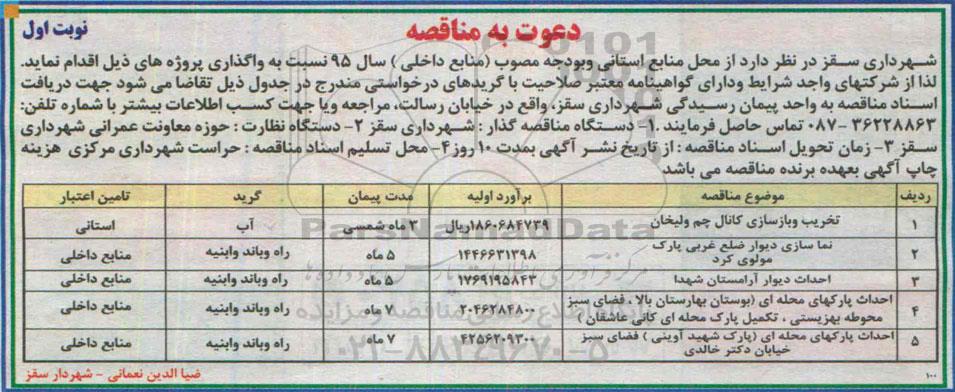 دعوت به مناقصه
نوبت اول
شهرداری سقز در نظر دارد از محل منابع استانی وبودجه مصوب (منابع داخلی ) سال ۹۵ نسبت به واگذاری پروژه های ذیل اقدام نماید.
لذا از شرکتهای واجد شرایط ودارای گواهینامه معتبر صلاحیت با گریدهای درخواستی مندرج در جدول ذیل تقاضا می شود جهت دریافت
اسناد مناقصه به واحد پیمان رسیدگی شهرداری سقز، واقع در خیابان رسالت، مراجعه ویا جهت کسب اطلاعات بیشتر با شماره تلفن:
۳۶۲۲۸۸۶۳ -۰۸۷ تماس حاصل فرمایند .۱- دستگاه مناقصه گذار : شهرداری سقز ۲- دستگاه نظارت : حوزه معاونت عمرانی شهرداری
سقز ۳- زمان تحویل اسناد مناقصه : از تاریخ نشر آگهی بمدت ۱۰ روز ۴- محل تسلیم اسناد مناقصه : حراست شهرداری مرکزی هزینه
چاپ آگهی بعهده برنده مناقصه می باشد
ردیف موضوع مناقصه برآورد اولیه مدت پیمان گرید تامین اعتبار
۱ تخریب وبازسازی کانال چم ولیخان ۱۸۶۰۶۸۴۷۳۹ریال ۳ ماه شمسی آب استانی
۲ نما سازی دیوار ضلع غربی پارک مولوی کرد ۱۴۴۶۶۳۱۳۹۸ ۵ ماه راه وباند وابنیه منابع داخلی
۳ احداث دیوار آرامستان شهدا ۱۷۶۹۱۹۵۸۴۳ ۵ ماه راه وباند وابنیه منابع داخلی
۴ احداث پارکهای محله ای (بوستان بهارستان بالا ، فضای سبز محوطه بهزیستی ، تکمیل پارک محله ای کانی عاشقان ) ۲۰۴۶۲۸۴۸۰۰ ۷ ماه راه وباند وابنیه منابع داخلی
۵ احداث پارکهای محله ای (پارک شهید آوینی ) فضای سبز خیابان دکتر خالدی ۴۲۵۶۲۰۹۳۰۰ ۷ ماه راه وباند وابنیه منابع داخلی
ضیا الدین نعمانی - شهردار سقز
۱۰۰
ParsNamadData
۰۲۱-۸۸۳۴۹۶۷۰-۵